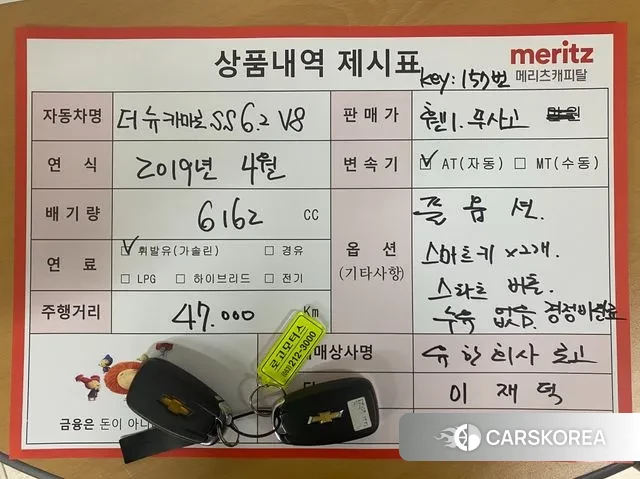 상품내역 제시표
meritz
메리츠캐피탈
key: 157번
자동차명 더 뉴 카마로 SS 6.2 V8
판매가 휠1. 무사고
연식 2019년 4월
변속기 AT(자동) MT(수동)
배기량 6162 CC
옵션
(기타사항)
풀 옵션.
스마트키 x2개.
스타트 버튼.
누유 없음.
연료 휘발유(가솔린) 경유
LPG 하이브리드 전기
주행거리 47.000 Km
로고모터스
212-3000
매매상사명 유한회사 로고
이재덕
금융은 돈이 아니
CARSKOREA